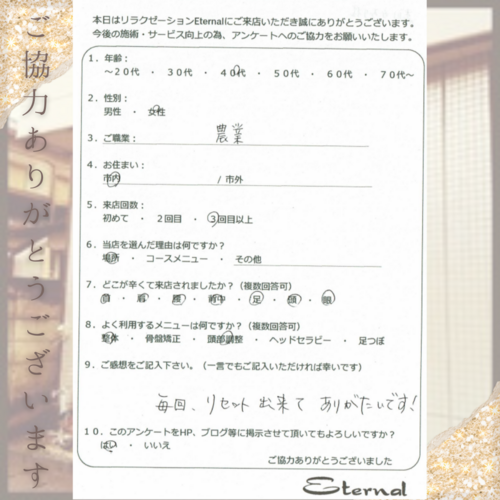 ご協力ありがとうございます
本日はリラクゼーションEternalにご来店いただき誠にありがとうございます。
今後の施術・サービス向上の為、アンケートへのご協力をお願いいたします。
1．年齢：
～20代 ・ 30代 ・ 40代 ・ 50代 ・ 60代 ・ 70代～
2．性別：
男性 ・ 女性
3．ご職業： 農業
4．お住まい：
市内 / 市外
5．来店回数：
初めて ・ 2回目 ・ 3回目以上
6．当店を選んだ理由は何ですか？
場所 ・ コースメニュー ・ その他
7．どこが辛くて来店されましたか？（複数回答可）
首 ・ 肩 ・ 腰 ・ 背中 ・ 足 ・ 頭 ・ 眼
8．よく利用するメニューは何ですか？（複数回答可）
整体 ・ 骨盤矯正 ・ 頭部調整 ・ ヘッドセラピー ・ 足つぼ
9．ご感想をご記入下さい。（一言でもご記入いただければ幸いです）
毎回、リセット出来て ありがたいです！
10．このアンケートをHP、ブログ等に掲示させて頂いてもよろしいですか？
はい ・ いいえ
ご協力ありがとうございました
Eternal